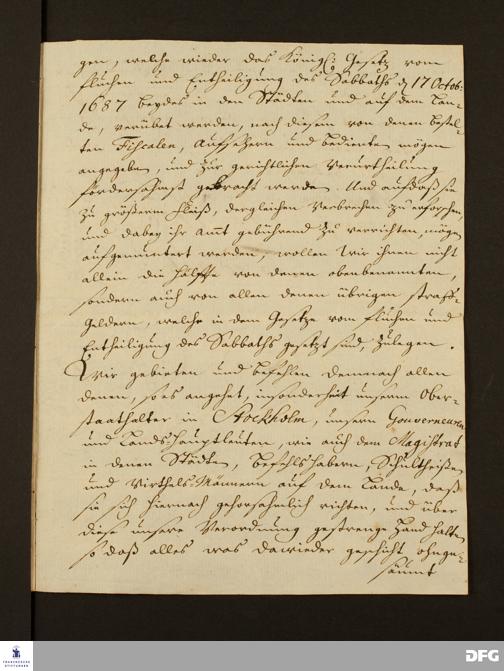 gen, welche wieder das Königl. Gesetz vom
fluchen und Entheiligung des Sabbaths d. 17 Octob:
1687 beydes in den Städten und auf dem Lan-
de, verübet werden, nach diesem von denen bestel-
ten Fiscalen, Aufsehern und bedienten mögen
angegeben, und zur gerichtlichen Verurtheilung
fordersahmst gebracht werden. Und aufdaß sie
zu größerm Fleiß, dergleichen Verbrechen zu erforschen,
und dabey ihr Amt gebührend zu verrichten, mögen
aufgemuntert werden, wollen Wir ihnen nicht
allein die Hälffte von denen obenbenannten,
sondern auch von allen denen übrigen straff-
Geldern, welche in dem Gesetze vom fluchen und
Entheiligung des Sabbaths gesetzt sind, zulegen.
Wir gebieten und befehlen demnach allen
denen, so es angehet, insonderheit unserm Ober-
staathalter in Stockholm, unsern Gouverneuren
und Landshauptleuten, wie auch dem Magistrat
in denen Städten, Befehlshabern, Schultheißen
und Virthels-Männern auf dem Lande, daß
sie sich hiernach gehorsahmlich richten, und über
diese unsere Verordnung gestrenge Hand halten,
so daß alles was dawieder geschieht ohnge-
säumt
FRANCKESCHE
STIFTUNGEN
DFG